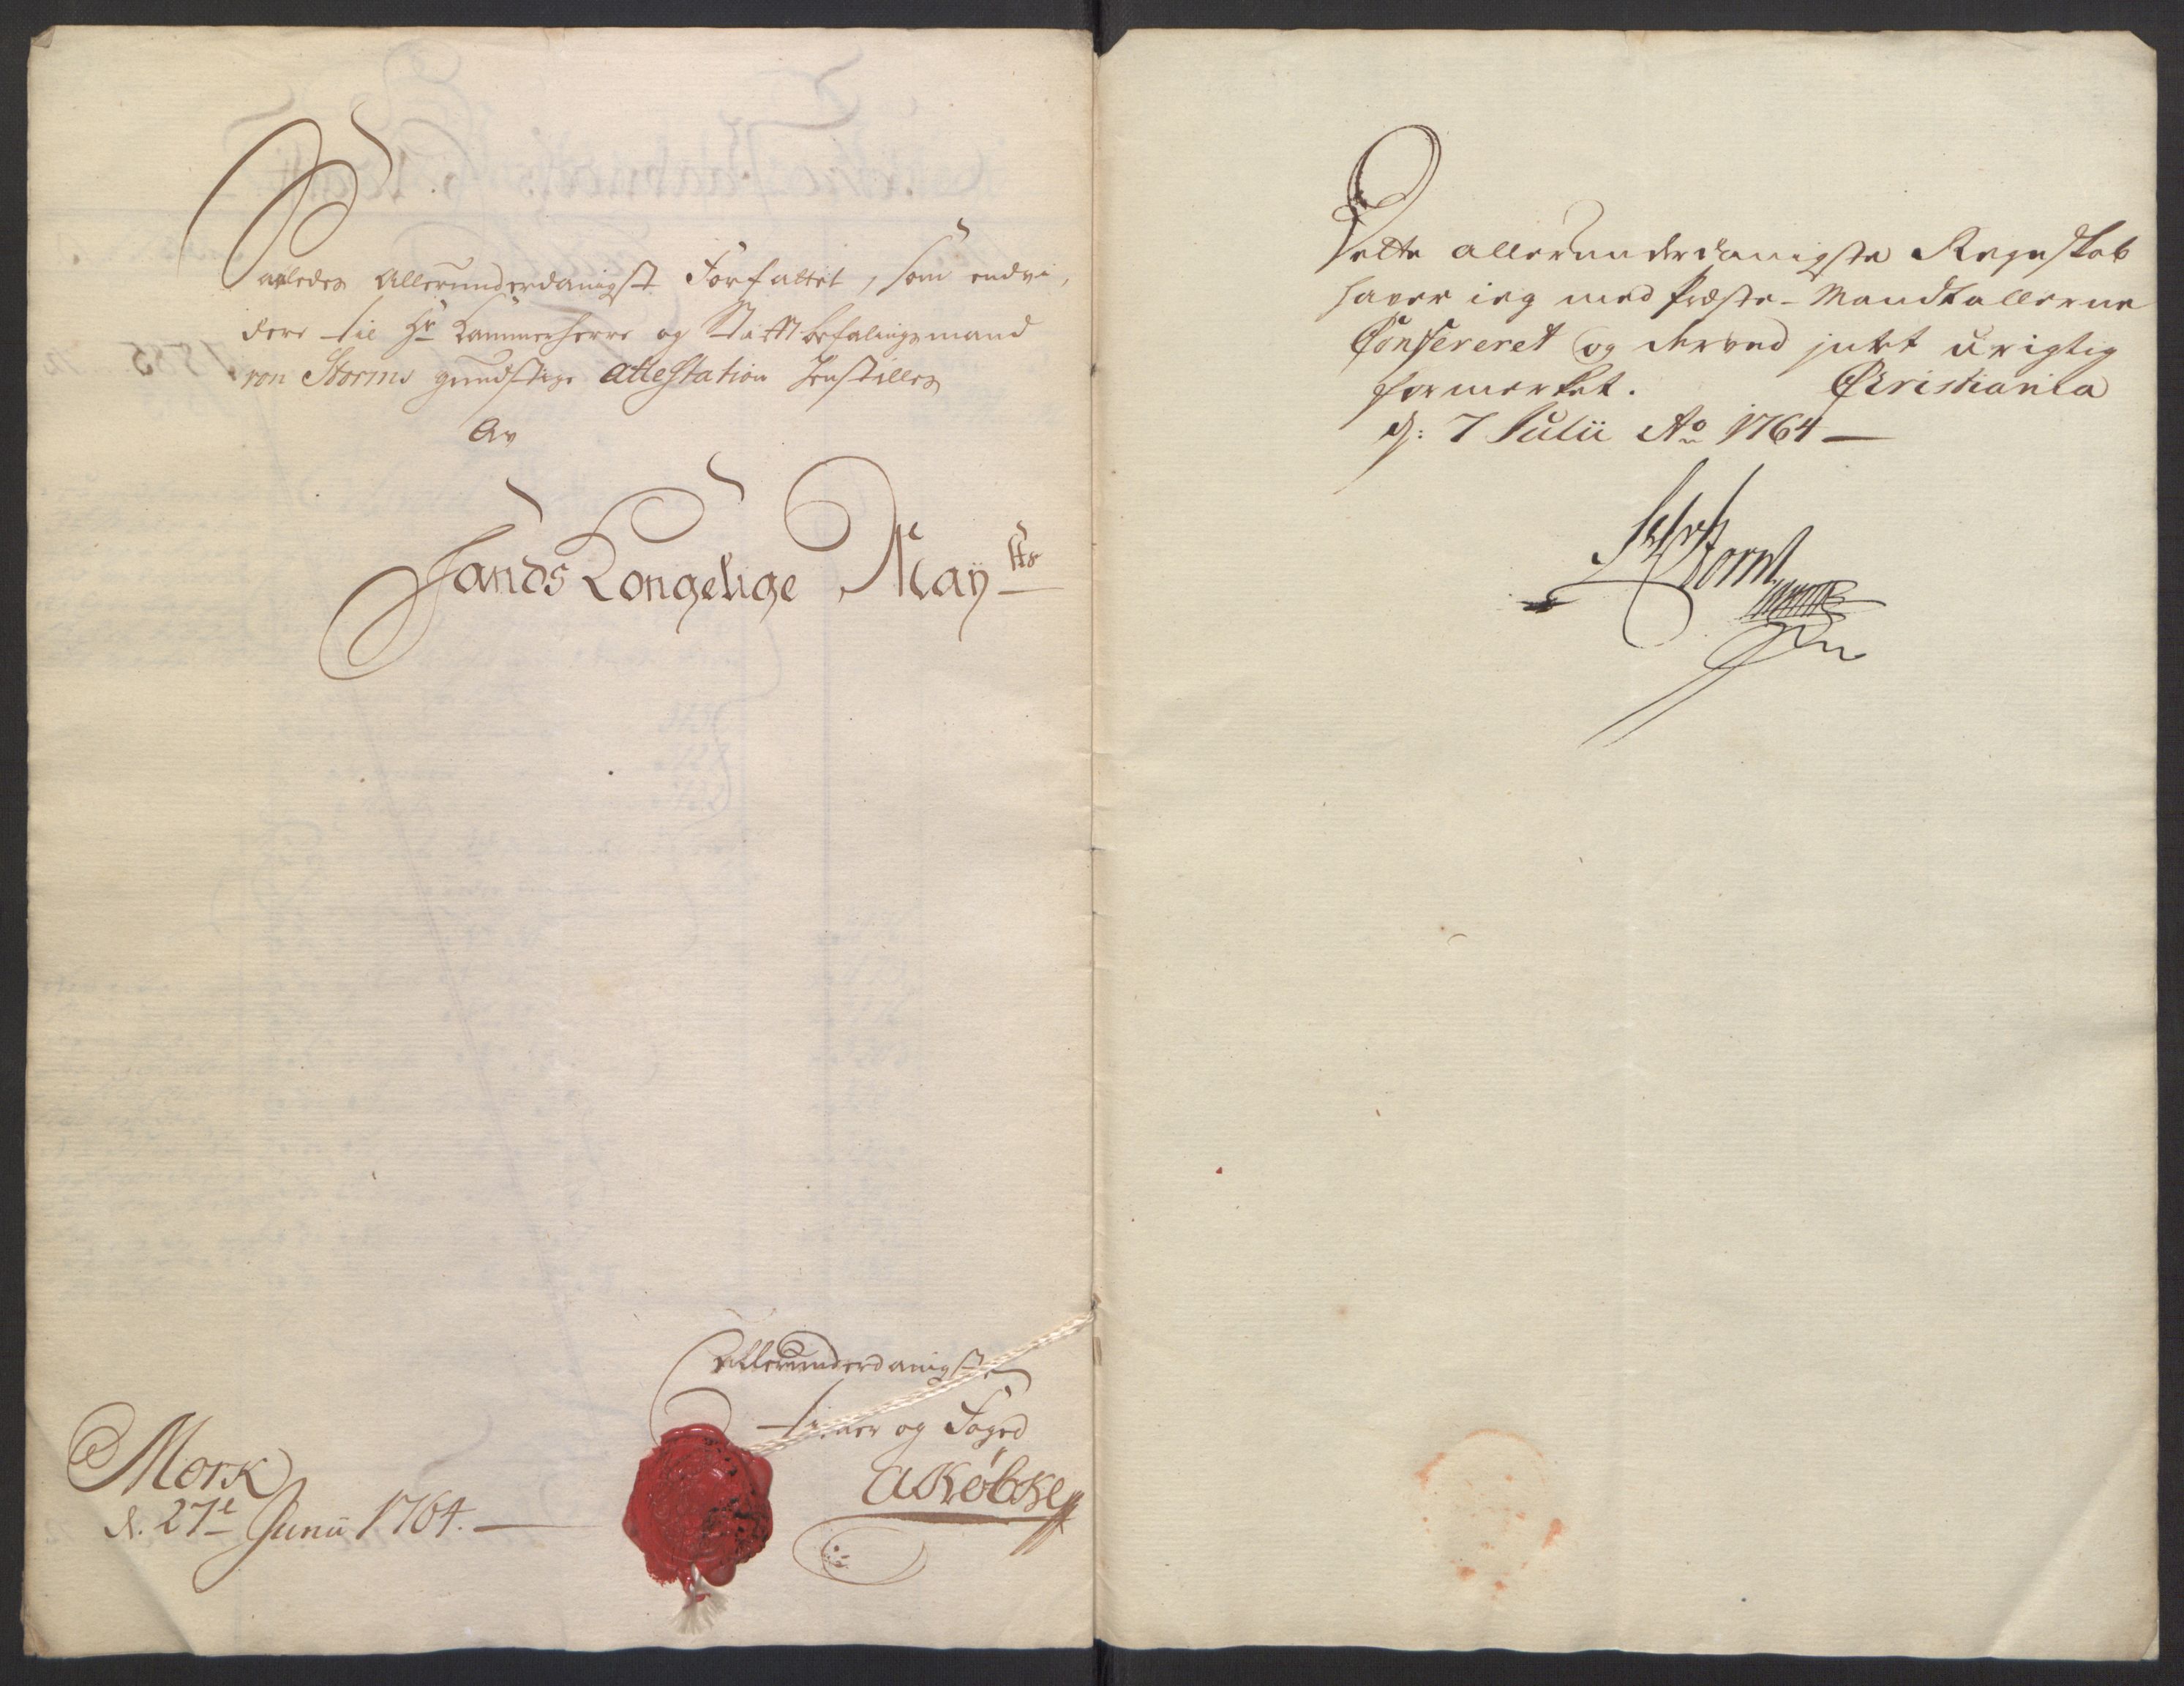 Saaledes Allerunderdanigst Forfattet, som endvi,
dere til Hr Kammerherre og Stiftbefalingsmand
von Storms gundstige attestation Indstilles
Av
Hands Kongelige Maÿtts
Allerunderdanigst
tiener og Foged
AKøbke
Mork
d. 27de Junii 1764.
Dette allerunderdanigste Regnskab
haver ieg med Præste-Mandtallerne
Confereret og derved intet urigtig
formerket. Christiania
d: 7 Julii Ao 1764
Storm